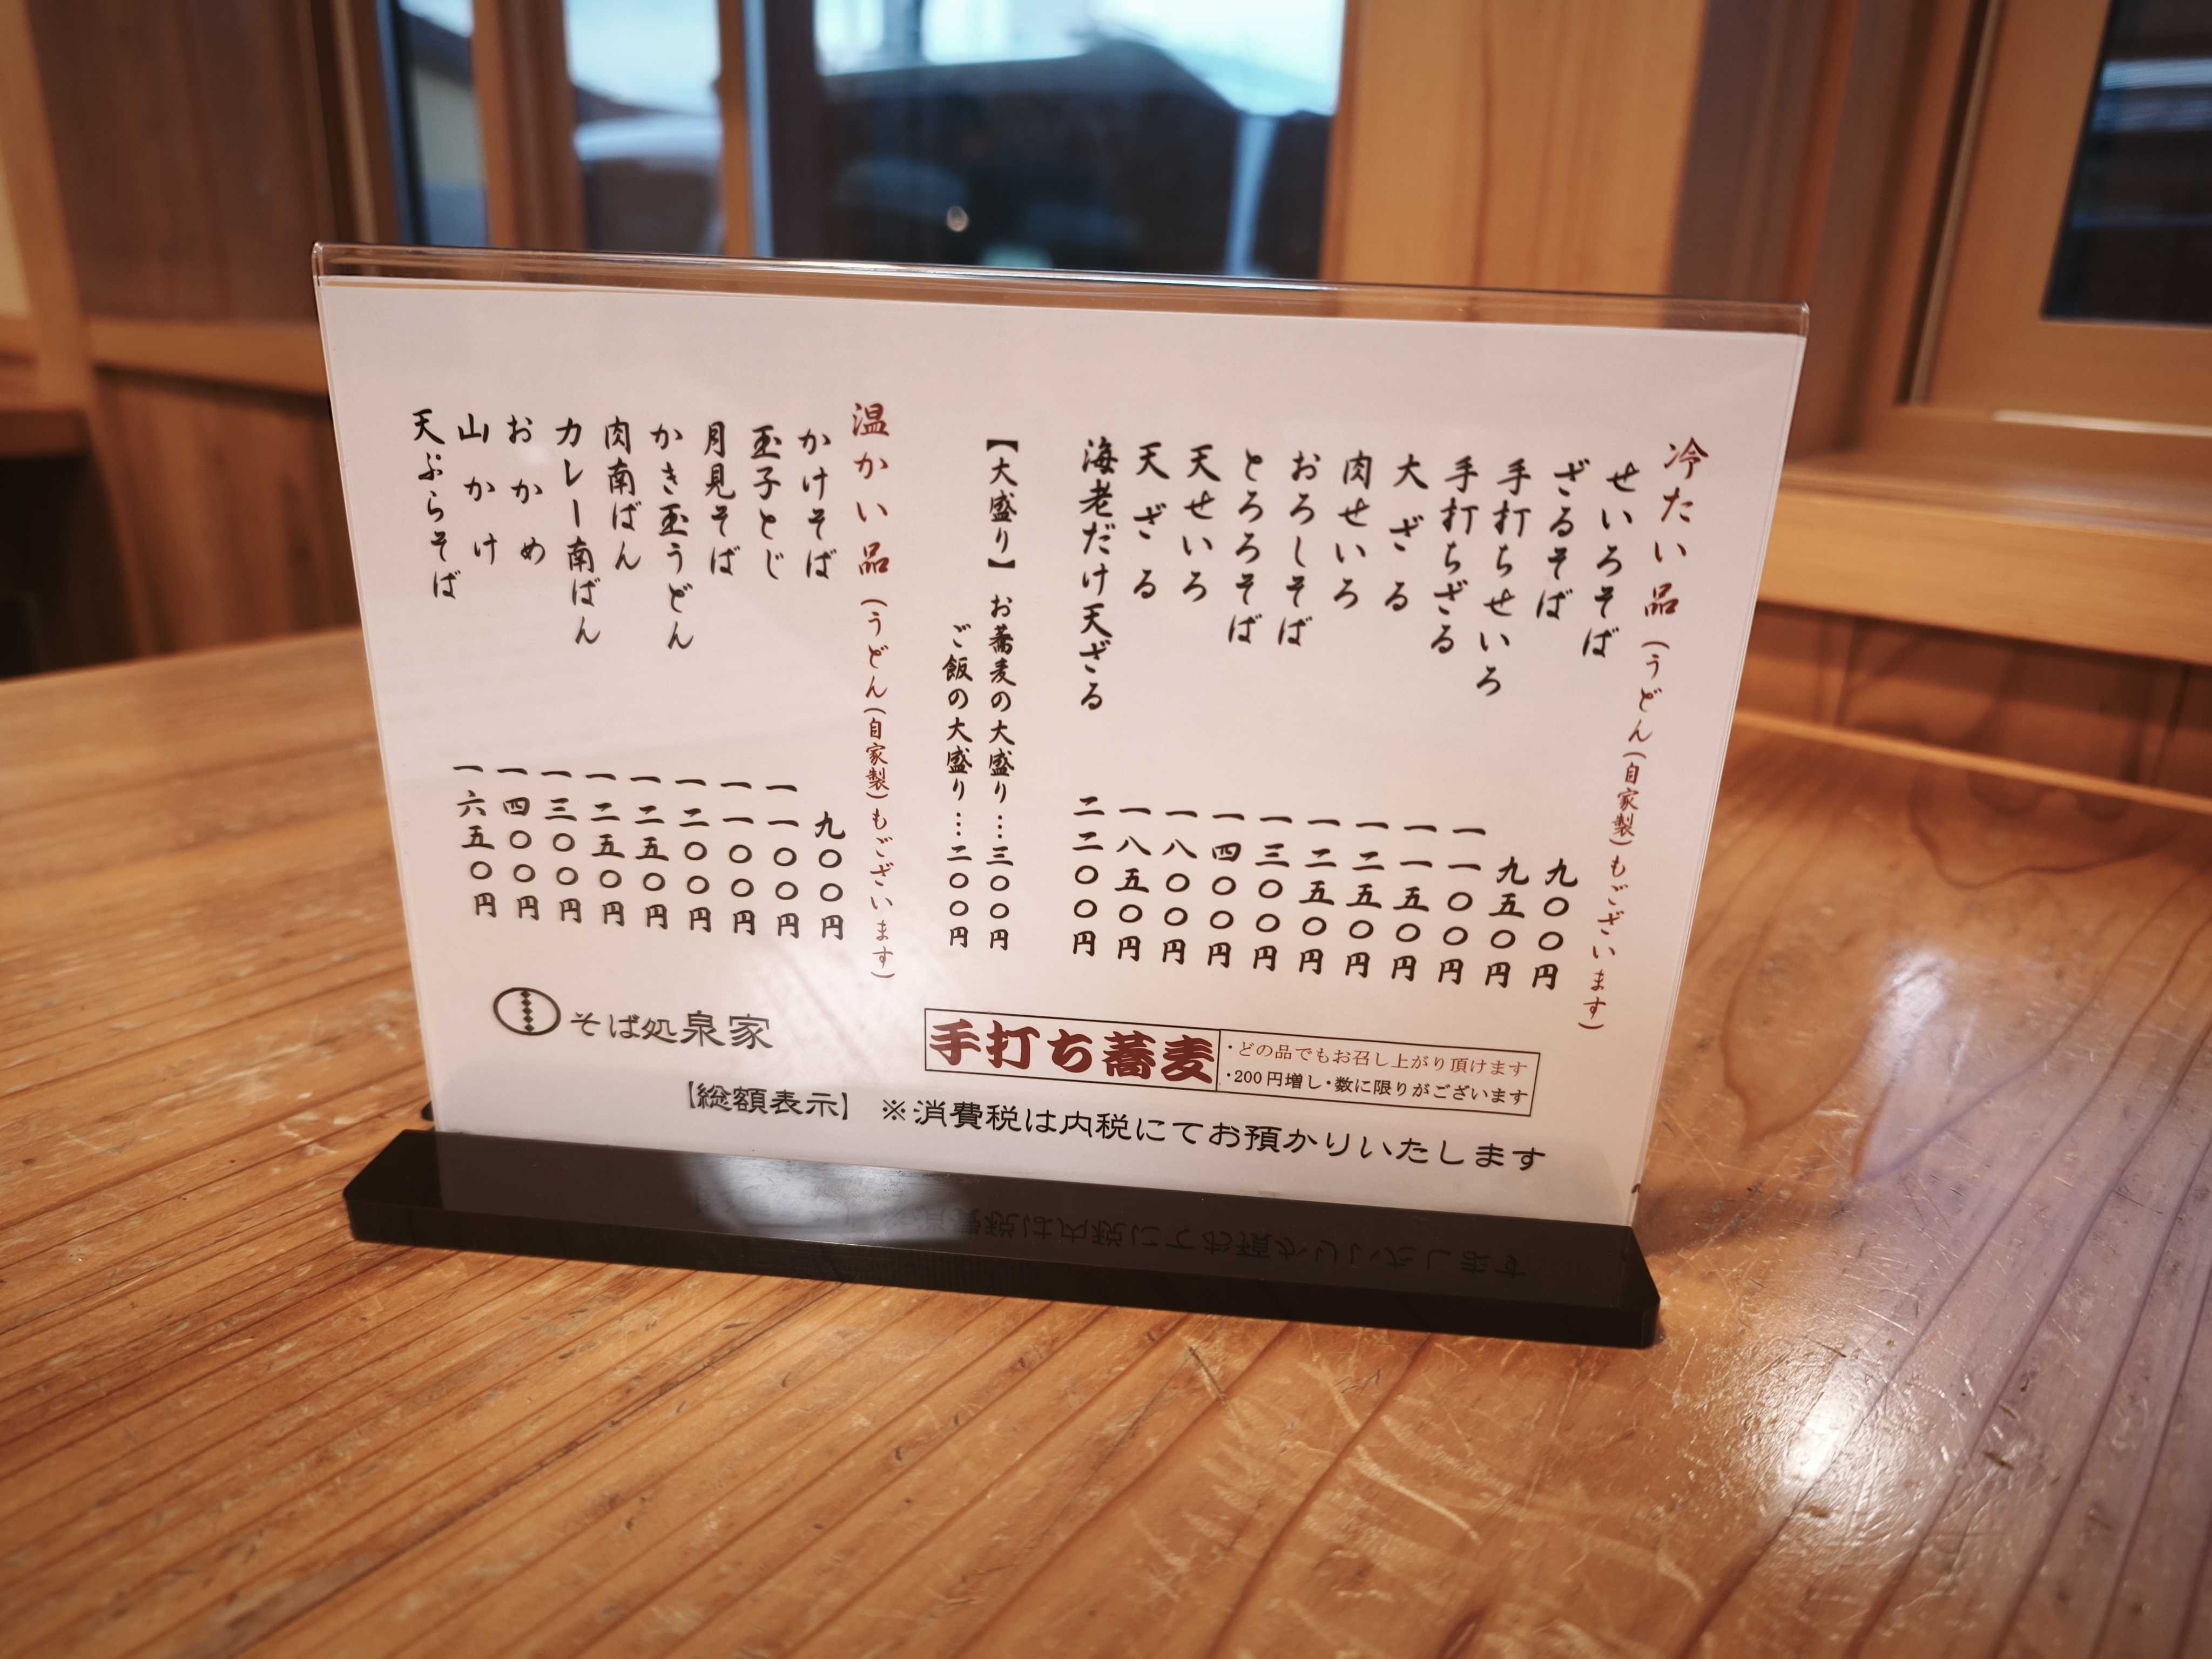 冷たい品(うどん(自家製)もございます)
せいろそば 九〇〇円
ざるそば 九五〇円
手打ちせいろ 一一〇〇円
手打ちざる 一一五〇円
大ざる 一二五〇円
肉せいろ 一二五〇円
おろしそば 一三〇〇円
とろろそば 一四〇〇円
天せいろ 一八〇〇円
天ざる 一八五〇円
海老だけ天ざる 二二〇〇円
【大盛り】お蕎麦の大盛り…三〇〇円
ご飯の大盛り…二〇〇円
温かい品(うどん(自家製)もございます)
かけそば 九〇〇円
玉子とじ 一一〇〇円
月見そば 一一〇〇円
かき玉うどん 一二〇〇円
肉南ばん 一二五〇円
カレー南ばん 一二五〇円
おかめ 一三〇〇円
山かけ 一四〇〇円
天ぷらそば 一六五〇円
そば処泉家
手打ち蕎麦
・どの品でもお召し上がり頂けます
・200円増し・数に限りがございます
【総額表示】 ※消費税は内税にてお預かりいたします